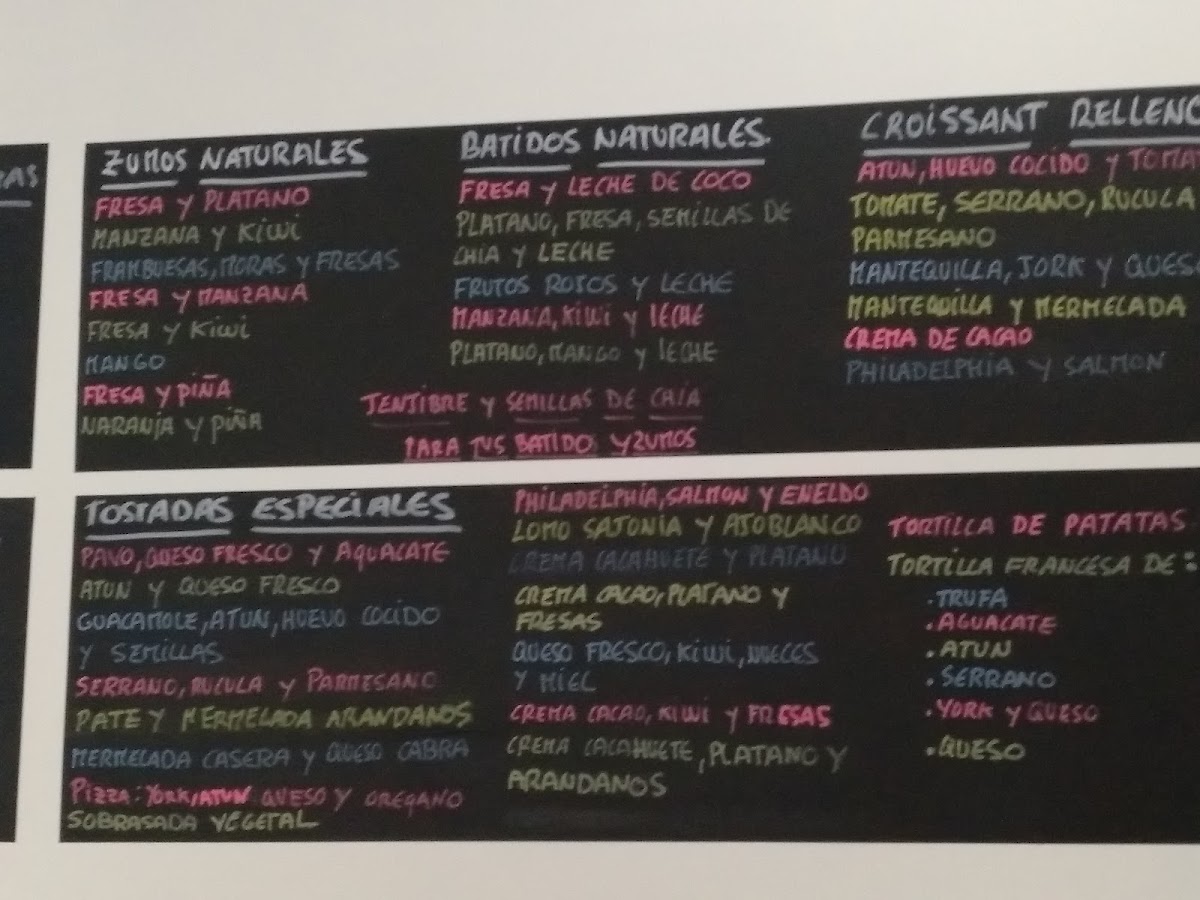 ZUMOS NATURALES
FRESA Y PLATANO
MANZANA Y KIWI
FRAMBUESAS, MORAS Y FRESAS
FRESA Y MANZANA
FRESA Y KIWI
MANGO
FRESA Y PIÑA
NARANJA Y PIÑA
BATIDOS NATURALES.
FRESA Y LECHE DE COCO
PLATANO, FRESA, SEMILLAS DE
CHIA Y LECHE
FRUTOS ROJOS Y LECHE
MANZANA, KIWI Y LECHE
PLATANO, MANGO Y LECHE
JENJIBRE Y SEMILLAS DE CHIA
PARA TUS BATIDO YZUMOS
CROISSANT RELLENO
ATUN, HUEVO COCIDO Y TOMAT
TOMATE, SERRANO, RUCULA
PARMESANO
MANTEQUILLA, JORK Y QUES
MANTEQUILLA Y MERMELADA
CREMA DE CACAO
PHILADELPHIA Y SALMON
TOSTADAS ESPECIALES
PAVO, QUESO FRESCO Y AQUACATE
ATUN Y QUESO FRESCO
GUACAMOLE, ATUN, HUEVO COCIDO
Y SEMILLAS
SERRANO, RUCULA Y PARMESANO
PATE Y MERMELADA ARANDANOS
MERMELADA CASERA Y QUESO CABRA
PIZZA: YORK, ATUN QUESO Y OREGANO
SOBRASADA VEGETAL
PHILADELPHIA, SALMON Y ENELDO
LOMO SAJONIA Y AJOBLANCO
CREMA CACAHUETE Y PLATANO
CREMA CACAO, PLATANO Y
FRESAS
QUESO FRESCO, KIWI, NUECES
Y MIEL
CREMA CACAO, KIWI Y FRESAS
CREMA CACAHUETE, PLATANO Y
ARANDANOS
TORTILLA DE PATATAS
TORTILLA FRANCESA DE:
. TRUFA
. AGUACATE
. ATUN
. SERRANO
. YORK Y QUESO
. QUESO